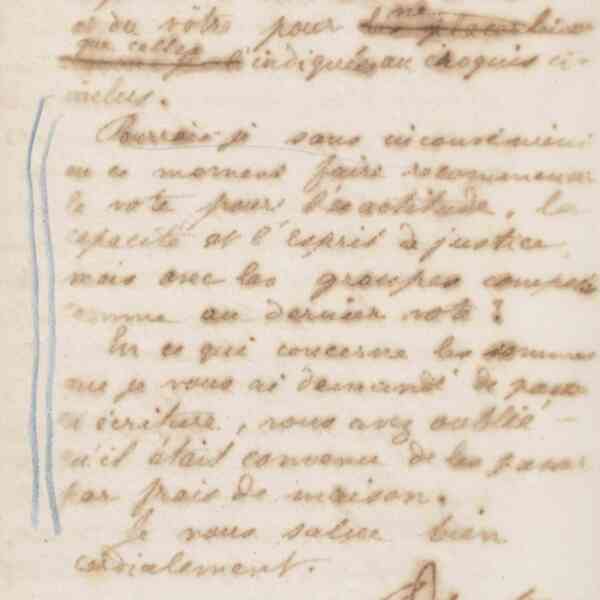 et du vôtre pour
que celles l'indiquées au croquis ci-
inclus.
Pourrais-je sans inconvénient
en ce moment faire recommencer
le vote pour l'exactitude, la
capacité et l'esprit de justice,
mais avec les groupes composés
comme au dernier vote ?
En ce qui concerne les sommes
que je vous ai demandé de passer
à écriture, vous avez oublié
qu'il était convenu de les passer
par frais de maison.
Je vous salue bien
cordialement.